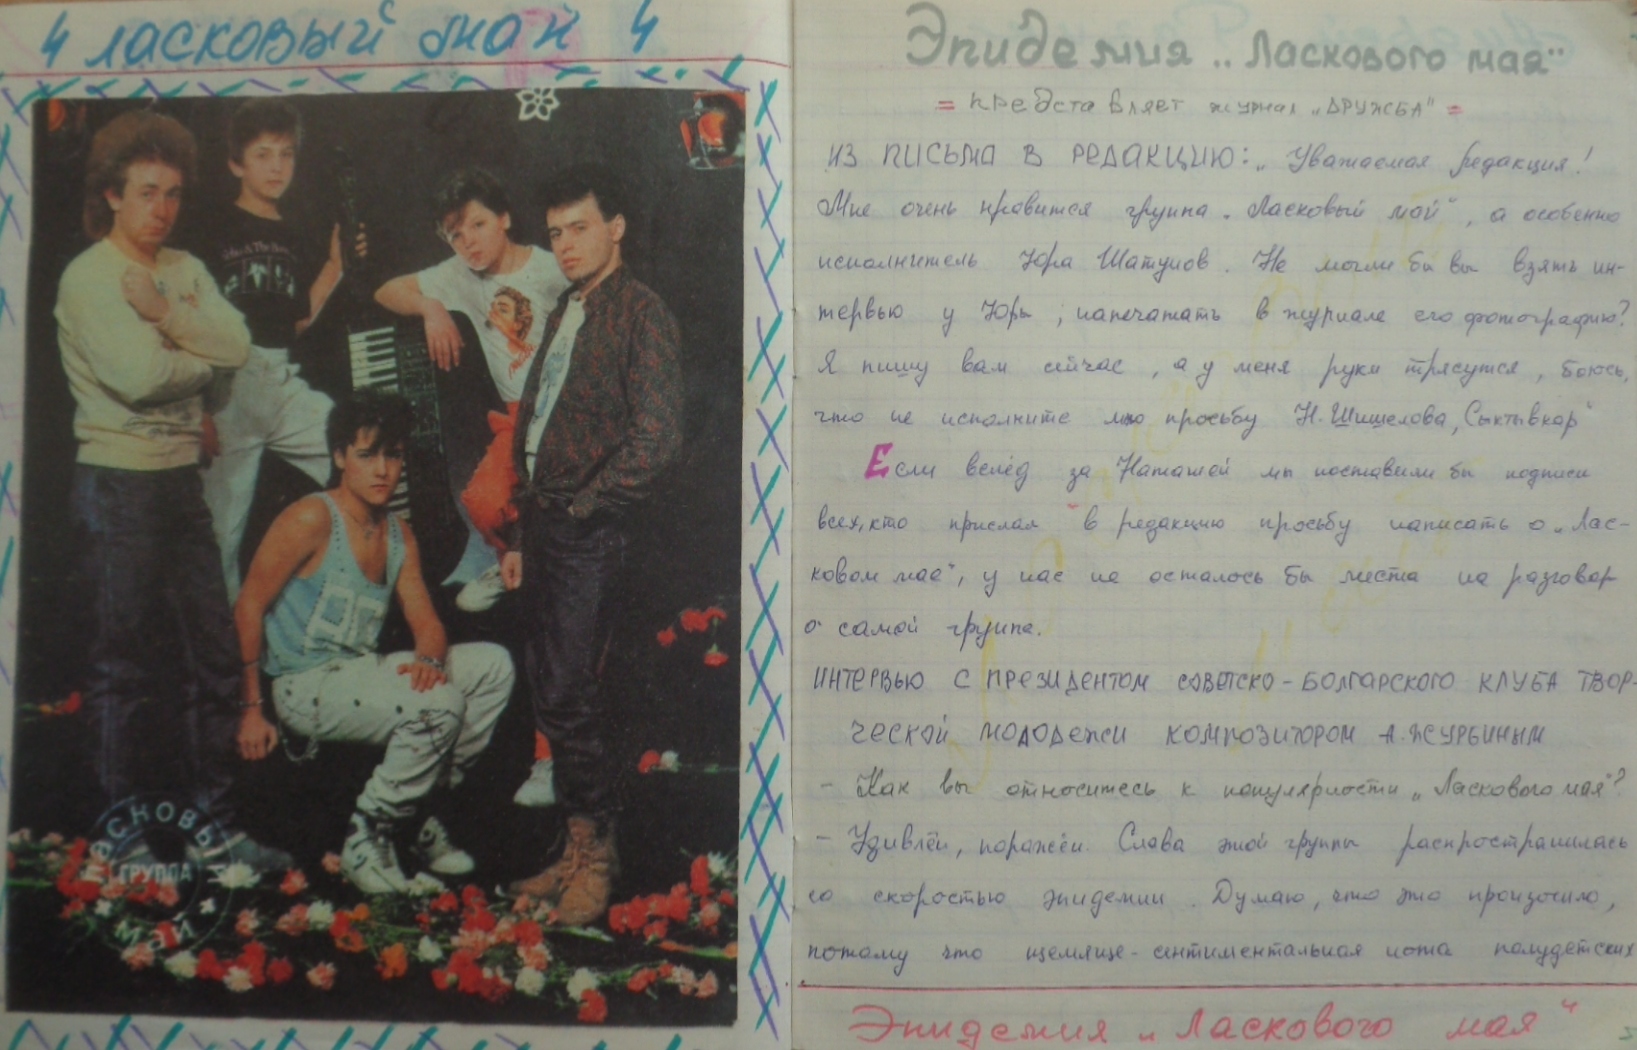 4 ласковый май 4
ласковый
ГРУППА
май
Эпидемия „Ласкового мая"
= представляет журнал „ДРУЖБА" =
ИЗ ПИСЬМА В РЕДАКЦИЮ: „Уважаемая редакция!
Мне очень нравится группа „Ласковый май", а особенно
исполнитель Юра Шатунов. Не могли бы вы взять ин-
тервью у Юры, напечатать в журнале его фотографию?
Я пишу вам сейчас, а у меня руки трясутся, боюсь,
что не исполните мою просьбу Н. Шишелова, Сыктывкар"
Если вслед за Наташей мы поставили бы подписи
всех, кто прислал в редакцию просьбу написать о „Лас-
ковом мае", у нас не осталось бы места на разговор
о самой группе.
ИНТЕРВЬЮ С ПРЕЗИДЕНТОМ СОВЕТСКО-БОЛГАРСКОГО КЛУБА ТВОР-
ЧЕСКОЙ МОЛОДЕЖИ КОМПОЗИТОРОМ А.ЖУРБИНЫМ
- Как вы относитесь к популярности „Ласкового мая"?
- Удивлён, поражён. Слава этой группы распространилась
со скоростью эпидемии. Думаю, что это произошло,
потому что щемяще-сентиментальная нота полудетских
Эпидемия „Ласкового мая"